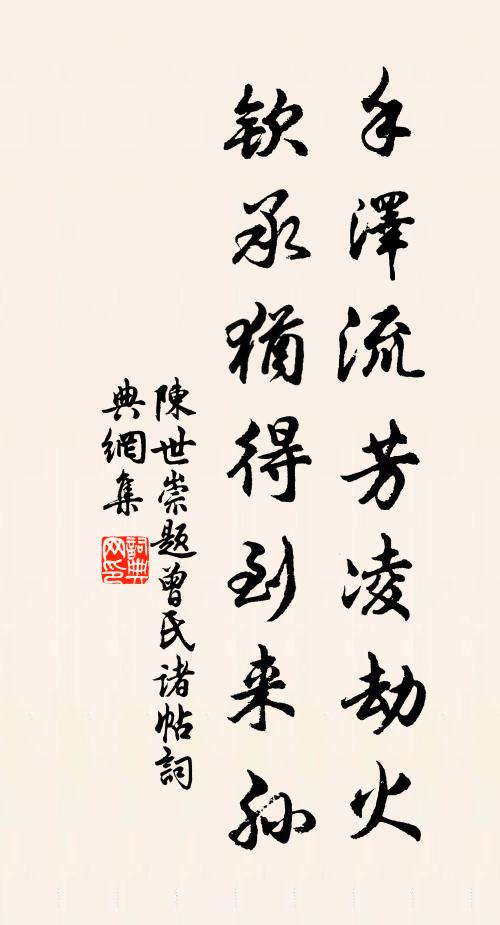 手澤流芳凌劫火
欽承猶得到来孫
陳世崇題曾氏諸帖詞
典網集
詞典網印